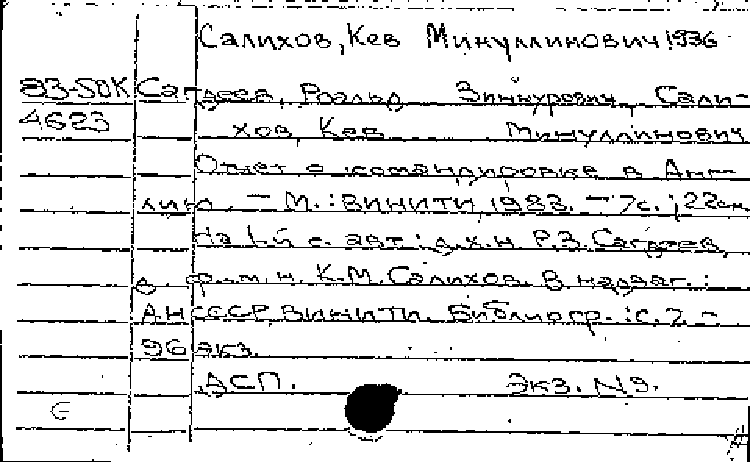 Салихов, Кев Минуллинович 1936
83-50К Сагдеев, Роальд Зиннурович, Сали-
4623 хов, Кев Минуллинович
Отчет о командировке в Анг-
лию. – М.: ВИНИТИ, 1983. – 7с.; 22см
На 1-й с. авт.: д.х.н. Р.З. Сагдеев,
д. ф.-м.н. К.М. Салихов. В надзаг.:
АН СССР, ВИНИТИ. Библиогр.: с. 7. –
96 экз.
ДСП. Экз. N9.